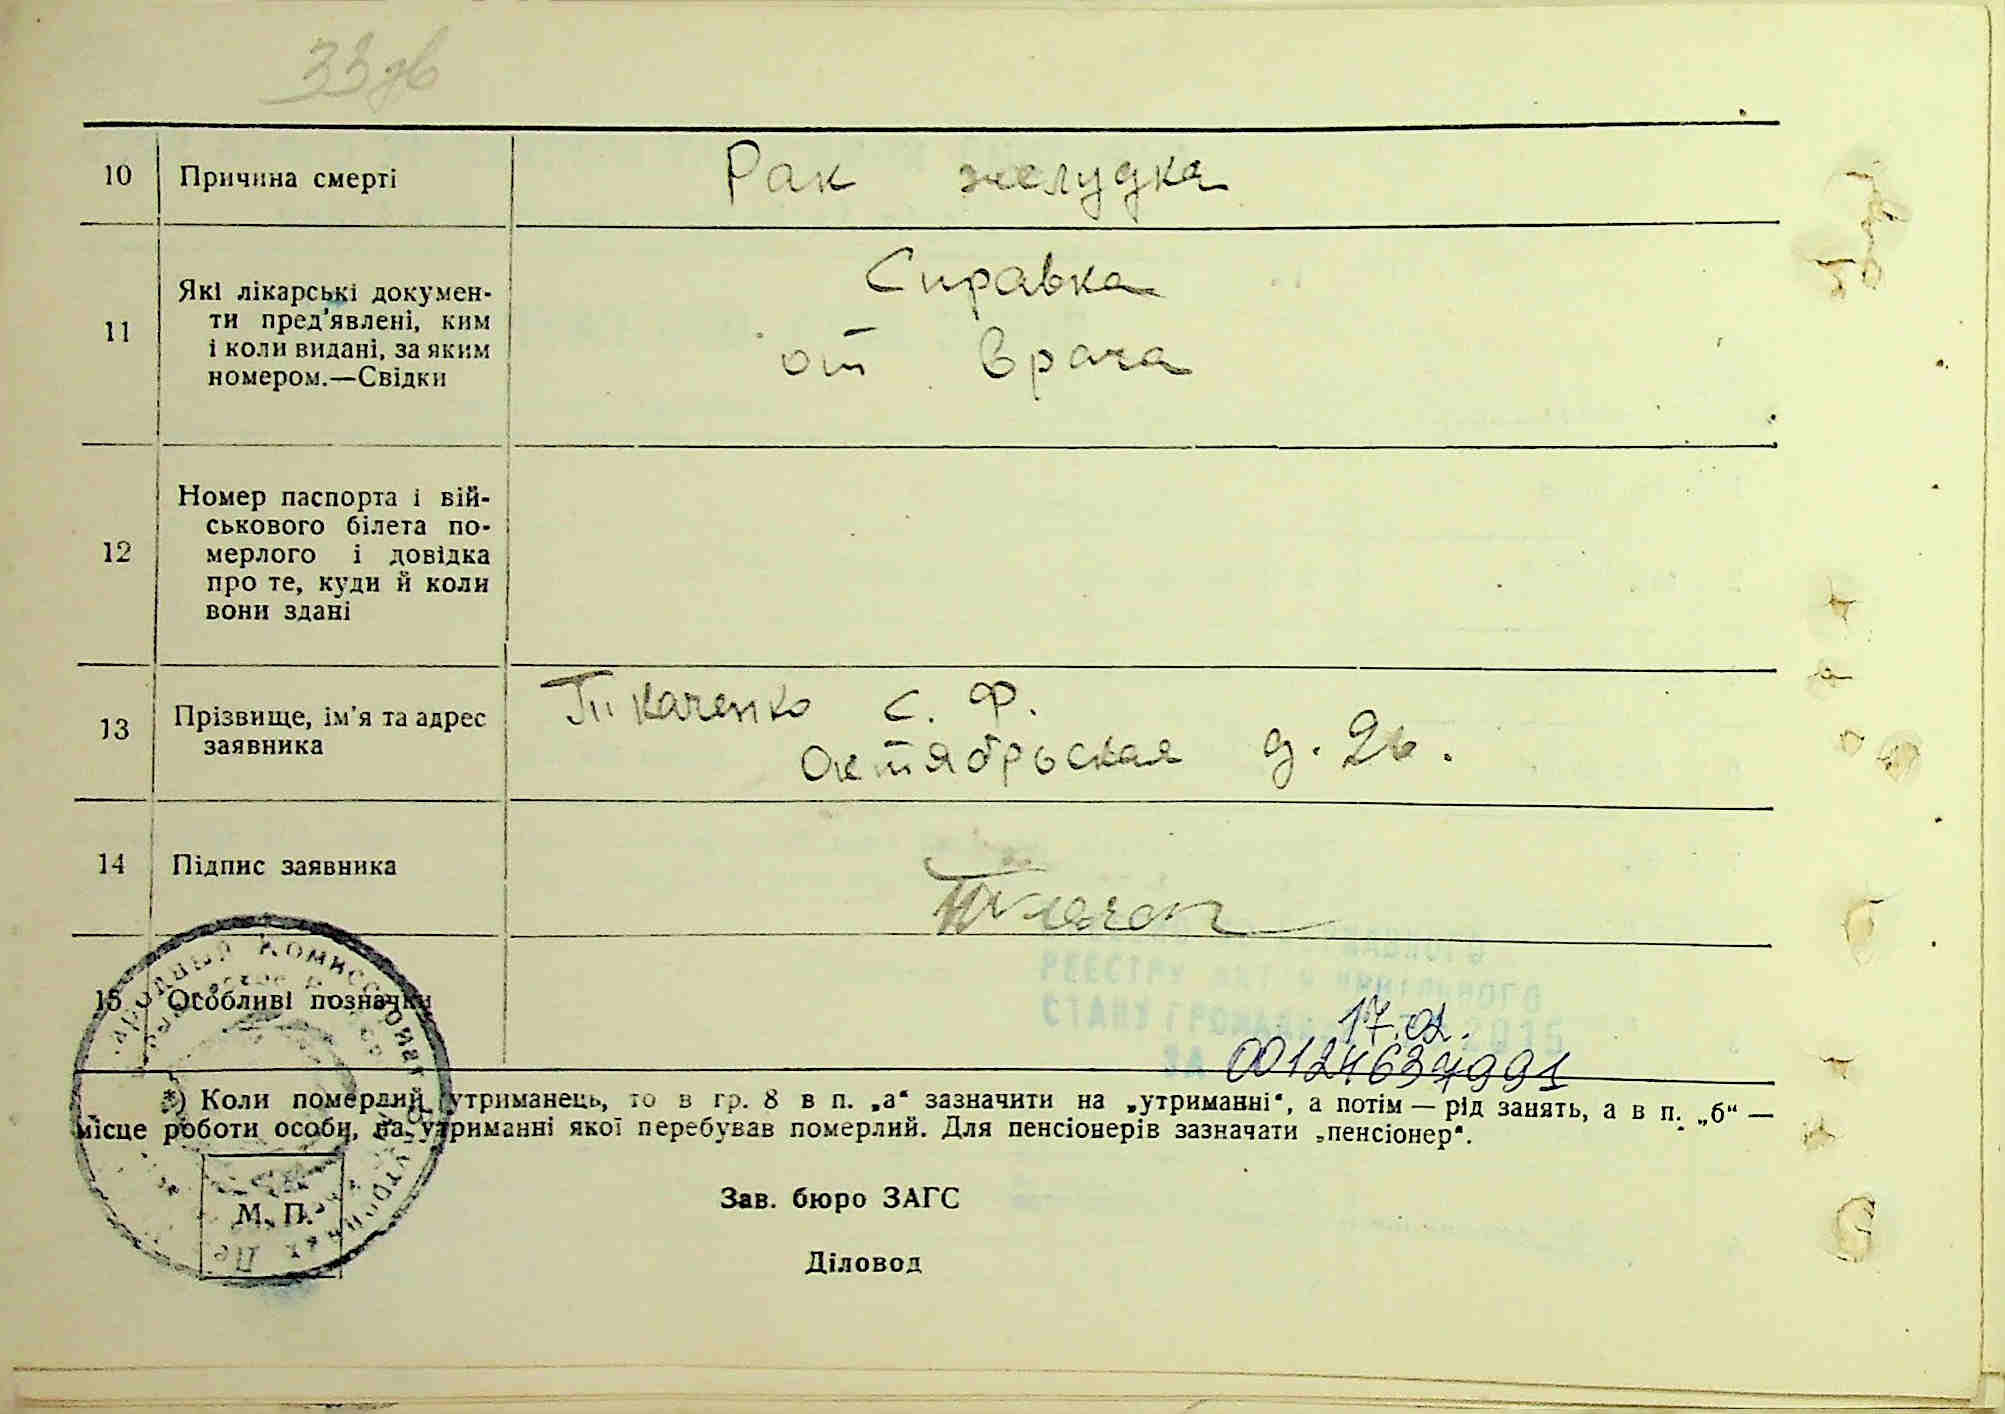 33 зв
10 Причина смерті Рак желудка
11 Які лікарські докумен-
ти пред'явлені, ким
і коли видані, за яким
номером.—Свідки
Справка
от врача
12 Номер паспорта і вій-
ськового білета по-
мерлого і довідка
про те, куди й коли
вони здані
13 Прізвище, ім'я та адрес
заявника
Ткаченко С. Ф.
Октябрьская д. 26.
14 Підпис заявника
15 Особливі позначки
РЕЄСТРУ АКТІВ ЦИВІЛЬНОГО
СТАНУ ГРОМАДЯН 17.02. 2015
ЗА 00124637991
*) Коли померлий утриманець, то в гр. 8 в п. „а“ зазначити на „утриманні“, а потім — рід занять, а в п. „б“ —
місце роботи особи, на утриманні якої перебував померлий. Для пенсіонерів зазначати „пенсіонер“.
Зав. бюро ЗАГС
М. П.
Діловод